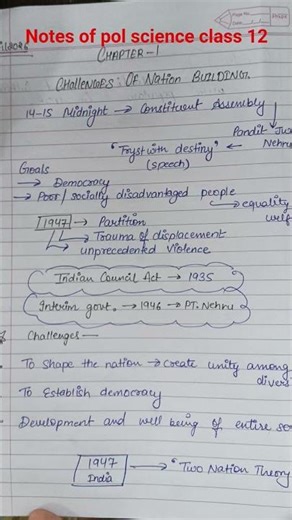 Notes of pol science class 12
CHAPTER-1
CHALLENGES OF NATION BUILDING.
14-15 Midnight → Constituent Assembly
Pandit
Nehru
"Tryst with destiny" ←
(speech)
Goals
→ Democracy
→ Poor/ socially disadvantaged people
→ equality
1947 → Partition
→ Trauma of displacement
→ unprecedented Violence
Indian Council Act → 1935
Interim govt. → 1946 → PT. Nehru
Challenges —
To Shape the nation → create unity among
To Establish democracy
Development and well being of entire
1947
India
→ "Two Nation Theory